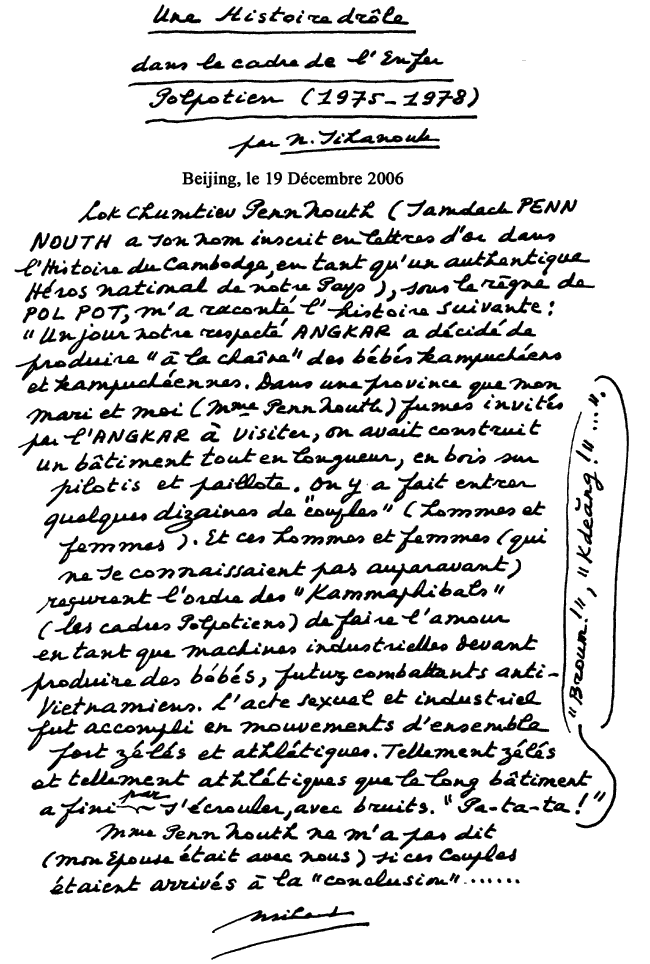 Une Histoire drôle
dans le cadre de l'Enfer
Polpotien (1975-1978)
par N. Sihanouk
Beijing, le 19 Décembre 2006
Lok Chumtiev Penn Nouth (Samdach PENN
NOUTH a son nom inscrit en lettres d'or dans
l'Histoire du Cambodge, en tant qu'un authentique
Héros national de notre Pays), sous le règne de
POL POT, m'a raconté l'histoire suivante :
"Un jour notre respecté ANGKAR a décidé de
produire "à la chaîne" des bébés kampuchéens
et kampuchéennes. Dans une province que mon
mari et moi (Mme Penn Nouth) fumes invités
par l'ANGKAR à visiter, on avait construit
un bâtiment tout en longueur, en bois sur
pilotis et paillote. On y a fait entrer
quelques dizaines de "couples" (hommes et
femmes). Et ces hommes et femmes (qui
ne se connaissaient pas auparavant)
reçurent l'ordre des "Kammaphibals"
(les cadres Polpotiens) de faire l'amour
en tant que machines industrielles devant
produire des bébés, futurs combattants anti-
Vietnamiens. L'acte sexuel et industriel
fut accompli en mouvements d'ensemble
fort zélés et athlétiques. Tellement zélés
et tellement athlétiques que le long bâtiment
a fini par s'écrouler, avec bruits. "Pa-ta-ta!"
"Broum!", "Kdeăng!"...".
Mme Penn Nouth ne m'a pas dit
(mon Epouse était avec nous) si ces couples
étaient arrivés à la "conclusion".......